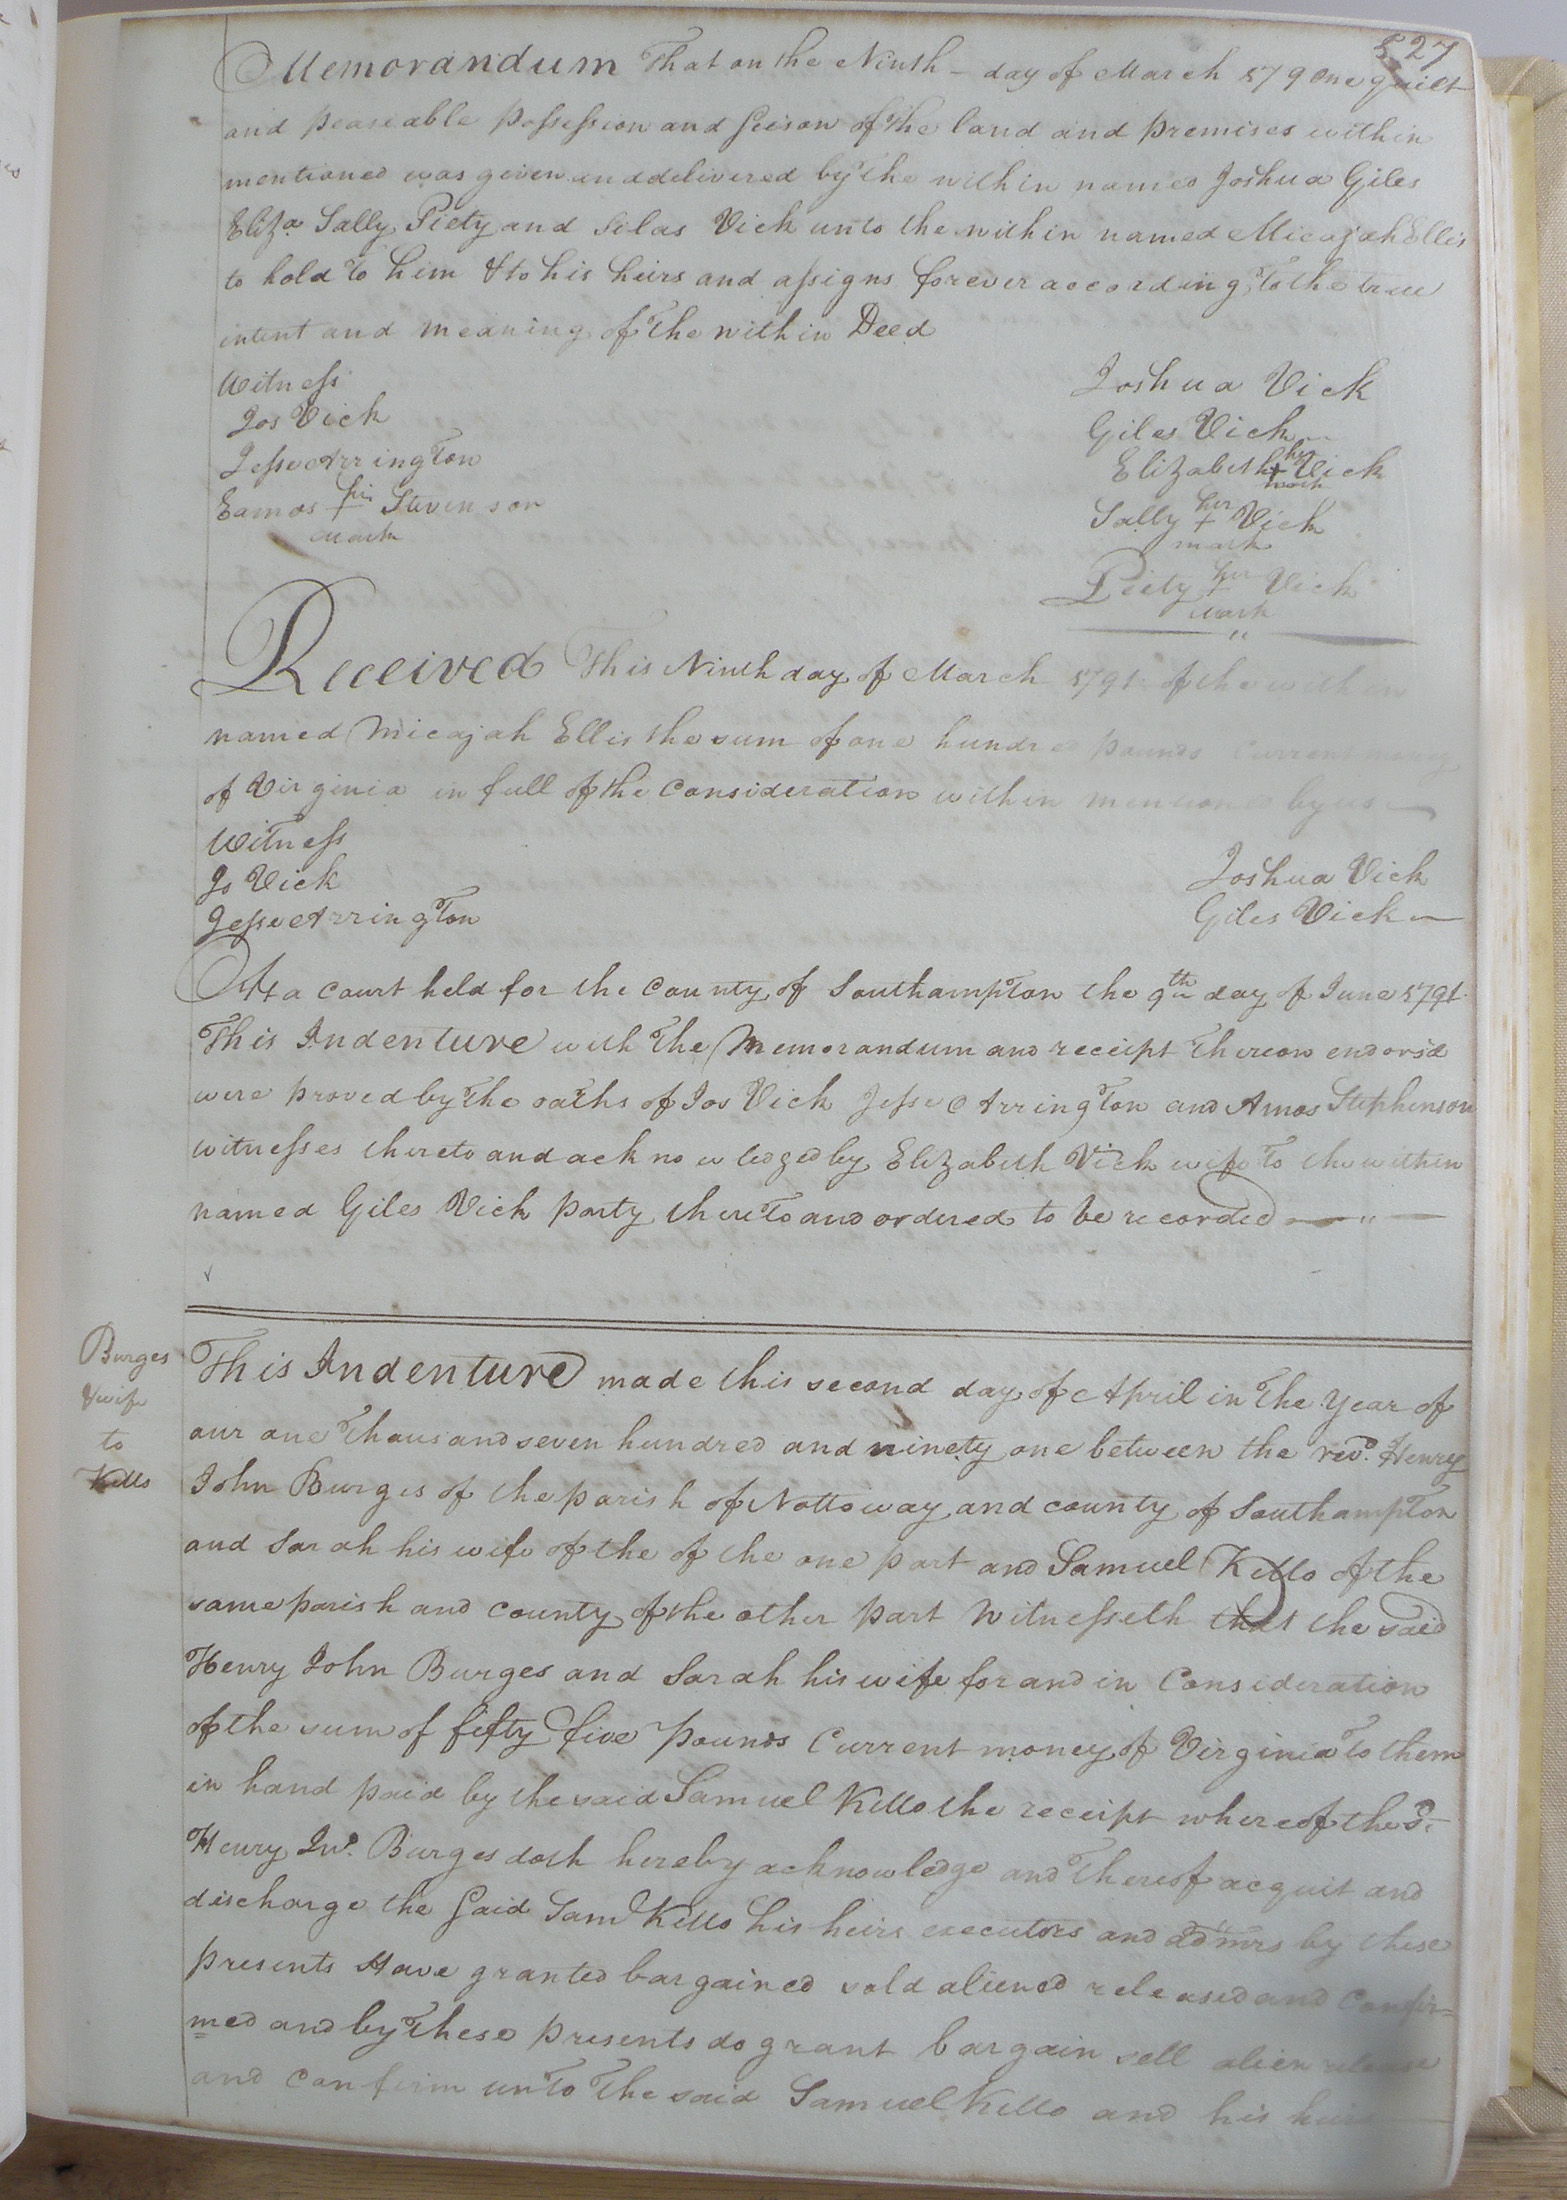 527
Memorandum That on the Ninth day of March 1791 one quiet
and peaseable possession and seison of the land and premises within
mentioned was given and delivered by the within named Joshua Giles
Eliza Sally Piety and Silas Vick unto the within named Micajah Ellis
to hold to him & to his heirs and assigns forever according to the true
intent and meaning of the within Deed
Witness
Joshua Vick
Jos Vick
Giles Vick
Jesse Arrington
Elizabeth her + mark Vick
Eamos his + mark Stevenson
Sally her + mark Vick
Piety her + mark Vick
Received This Ninth day of March 1791 of the within
named Micajah Ellis the sum of one hundred pounds Current money
of Virginia in full of the Consideration within mentioned by us
Witness
Jo Vick
Joshua Vick
Jesse Arrington
Giles Vick
At a Court held for the County of Southampton the 9th day of June 1791
This Indenture with The Memorandum and receipt Thereon endors'd
were proved by The oaths of Jos Vick Jesse Arrington and Amos Stephenson
witnesses thereto and acknowledged by Elizabeth Vick wife To the within
named Giles Vick party thereto and ordered to be recorded
Burges
& wife
to
Kello
This Indenture made this second day of April in The Year of
our one Thousand seven hundred and ninety one between the revd. Henry
John Burges of the parish of Nottoway and county of Southampton
and Sarah his wife of the of the one part and Samuel Kello of the
same parish and county of the other part Witnesseth that the said
Henry John Burges and Sarah his wife for and in Consideration
of the sum of fifty five Pounds Current money of Virginia To them
in hand paid by the said Samuel Kello the receipt whereof the sd.
Henry Jno. Burges doth hereby acknowledge and Thereof acquit and
discharge the Said Saml Kello his heirs executors and admrs by these
presents Have granted bargained sold aliened released and Confir=
=med and by These presents do grant bargain sell alien release
and Confirm unto The said Samuel Kello and his heirs